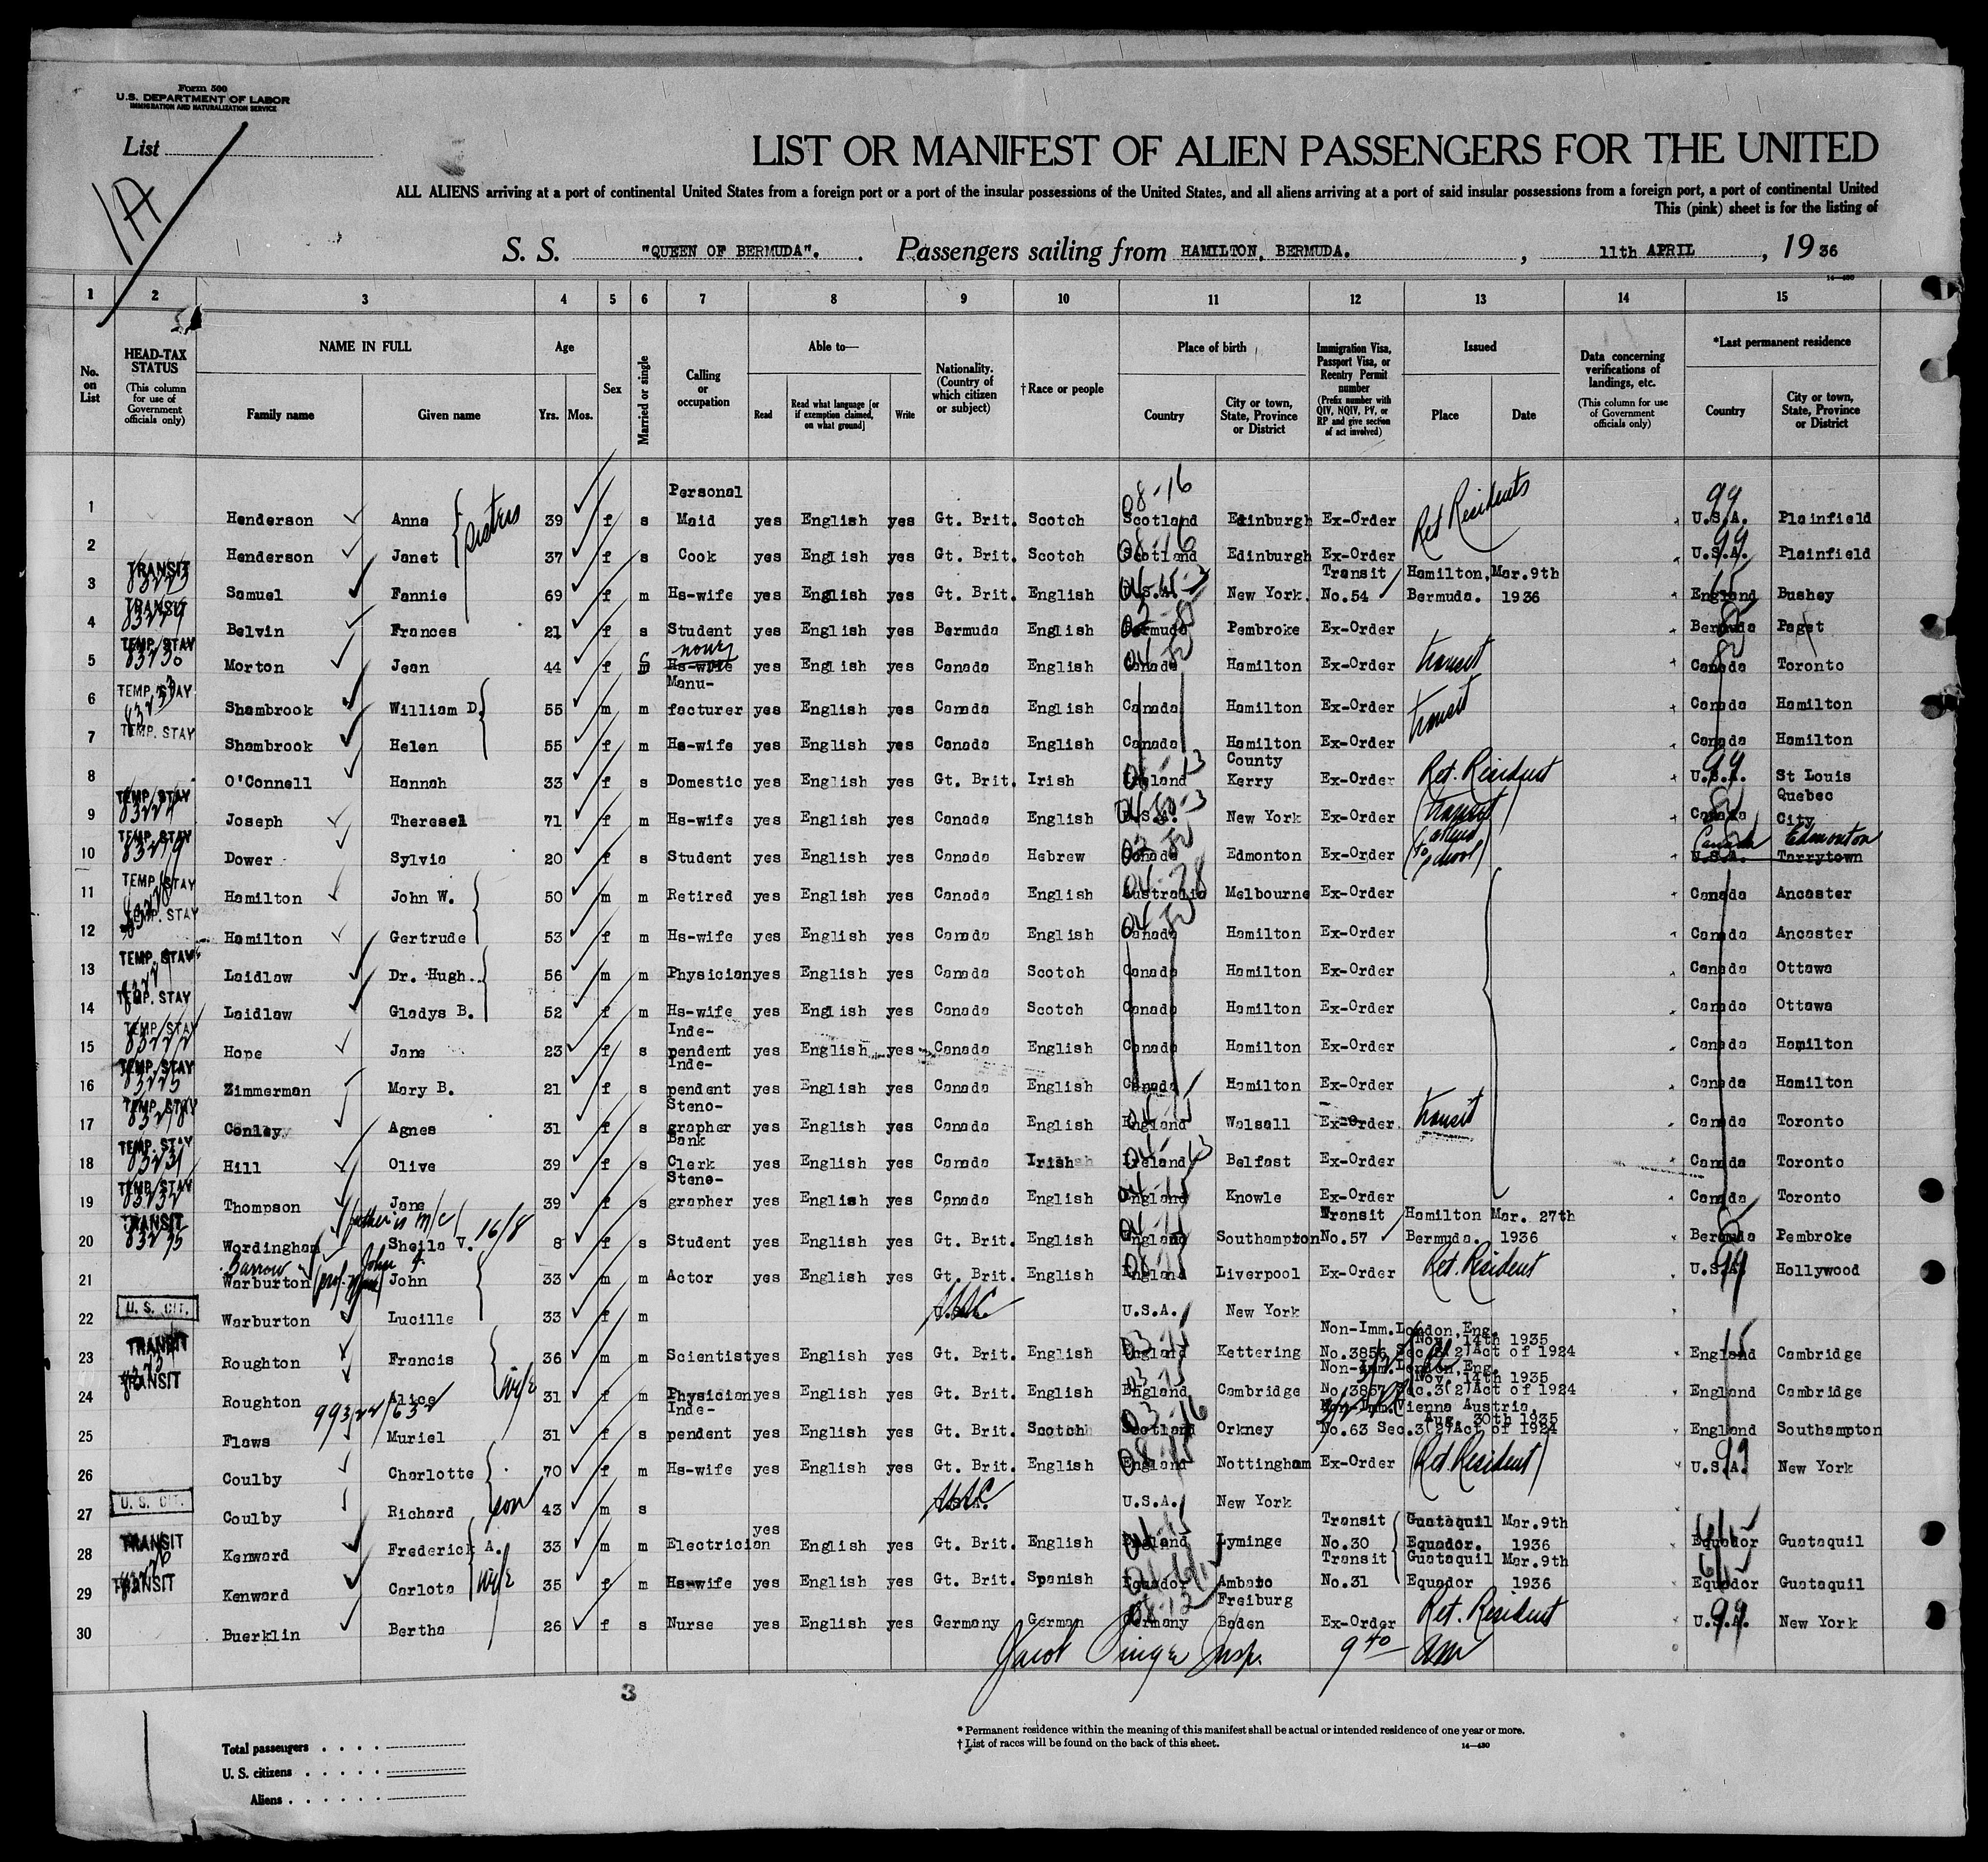 Form 500
U.S. DEPARTMENT OF LABOR
IMMIGRATION AND NATURALIZATION SERVICE
List
1A
LIST OR MANIFEST OF ALIEN PASSENGERS FOR THE UNITED
ALL ALIENS arriving at a port of continental United States from a foreign port or a port of the insular possessions of the United States, and all aliens arriving at a port of said insular possessions from a foreign port, a port of continental United
This (pink) sheet is for the listing of
S. S. "QUEEN OF BERMUDA". Passengers sailing from HAMILTON, BERMUDA. , 11th APRIL , 1936
14-430
1 2 3 4 5 6 7 8 9 10 11 12 13 14 15
No. on List
HEAD-TAX STATUS (This column for use of Government officials only)
NAME IN FULL Family name Given name
Age Yrs. Mos.
Sex
Married or single
Calling or occupation
Able to— Read Read what language [or if exemption claimed, on what ground] Write
Nationality. (Country of which citizen or subject)
†Race or people
Place of birth Country City or town, State, Province or District
Immigration Visa, Passport Visa, or Reentry Permit number (Prefix number with QIV, NQIV, PV, or RP and give section of act involved)
Issued Place Date
Data concerning verifications of landings, etc. (This column for use of Government officials only)
*Last permanent residence Country City or town, State, Province or District
1 Henderson Anna sisters 39 f s Personal Maid yes English yes Gt. Brit. Scotch 08-16 Scotland Edinburgh Ex-Order Ret Residents 99 U.S.A. Plainfield
2 Henderson Janet 37 f s Cook yes English yes Gt. Brit. Scotch 08-16 Scotland Edinburgh Ex-Order 99 U.S.A. Plainfield
3 TRANSIT Samuel Fannie 69 f m Hs-wife yes English yes Gt. Brit. English U.S.A. New York. Transit No.54 Hamilton, Bermuda. Mar.9th 1936 England Bushey
4 TRANSIT Belvin Frances 21 f s Student yes English yes Bermuda English Bermuda Pembroke Ex-Order Bermuda Paget
5 TEMP. STAY 83230 Morton Jean 44 f s Hs-wife none yes English yes Canada English Canada Hamilton Ex-Order transit Canada Toronto
6 TEMP. STAY 83233 Shambrook William D. 55 m m Manu-facturer yes English yes Canada English Canada Hamilton Ex-Order transit Canada Hamilton
7 TEMP. STAY Shambrook Helen 55 f m Hs-wife yes English yes Canada English Canada Hamilton Ex-Order Canada Hamilton
8 O'Connell Hannah 33 f s Domestic yes English yes Gt. Brit. Irish Ireland County Kerry Ex-Order Ret. Resident 99 U.S.A. St Louis
9 TEMP. STAY Joseph Theresel 71 f m Hs-wife yes English yes Canada English U.S.A. New York Ex-Order transit Canada Quebec City
10 TEMP. STAY Dower Sylvia 20 f s Student yes English yes Canada Hebrew Canada Edmonton Ex-Order (attend school) Canada Edmonton U.S.A. Tarrytown
11 TEMP. STAY Hamilton John W. 50 m m Retired yes English yes Canada English 04-28 Australia Melbourne Ex-Order Canada Ancaster
12 TEMP. STAY Hamilton Gertrude 53 f m Hs-wife yes English yes Canada English Canada Hamilton Ex-Order Canada Ancaster
13 TEMP. STAY Laidlaw Dr. Hugh 56 m m Physician yes English yes Canada Scotch Canada Hamilton Ex-Order Canada Ottawa
14 TEMP. STAY Laidlaw Gladys B. 52 f m Hs-wife yes English yes Canada Scotch Canada Hamilton Ex-Order Canada Ottawa
15 TEMP. STAY Hope Jane 23 f s Inde-pendent yes English yes Canada English Canada Hamilton Ex-Order Canada Hamilton
16 TEMP. STAY 83225 Zimmerman Mary B. 21 f s Inde-pendent yes English yes Canada English Canada Hamilton Ex-Order Canada Hamilton
17 TEMP. STAY Conley Agnes 31 f s Steno-grapher yes English yes Canada English England Walsall Ex-Order. transit Canada Toronto
18 TEMP. STAY 83231 Hill Olive 39 f s Bank Clerk yes English yes Canada Irish Ireland Belfast Ex-Order Canada Toronto
19 TEMP. STAY 83232 Thompson Jane 39 f s Steno-grapher yes English yes Canada English 04-15 England Knowle Ex-Order Canada Toronto
20 TRANSIT 83235 Wordingham father is m/c Sheila V. 16/8 8 f s Student yes English yes Gt. Brit. English England Southampton Transit No.57 Hamilton Bermuda. Mar. 27th 1936 Bermuda Pembroke
21 Barrow Warburton John 33 m m Actor yes English yes Gt. Brit. English England Liverpool Ex-Order Ret. Resident 99 U.S.A. Hollywood
22 U. S. CIT. Warburton Lucille 33 f m U.S.A. New York
23 TRANSIT Roughton Francis 36 m m Scientist yes English yes Gt. Brit. English 03-15 England Kettering Non-Imm. London, Eng. Nov. 14th 1935 No.3856 Sec.3(2)Act of 1924 England Cambridge
24 TRANSIT Roughton Alice wife 31 f m Physician yes English yes Gt. Brit. English 03-15 England Cambridge Non-Imm. London, Eng. Nov. 14th 1935 No.3857 Sec.3(2)Act of 1924 England Cambridge
25 Flaws Muriel 31 f s Inde-pendent yes English yes Gt. Brit. Scotch 03-16 Scotland Orkney Non-Imm. Vienna Austria, Aug. 30th 1935 No.63 Sec.3(2)Act of 1924 England Southampton
26 Coulby Charlotte 70 f m Hs-wife yes English yes Gt. Brit. English 08-15 England Nottingham Ex-Order (Ret. Resident) 99 U.S.A. New York
27 U. S. CIT. Coulby Richard son 43 m s U.S.A. New York
28 TRANSIT Kenward Frederick A. 33 m m Electrician yes English yes Gt. Brit. English 04-15 England Lyminge Transit No.30 Guataquil Equador. Mar.9th 1936 Equador Guataquil
29 TRANSIT Kenward Carlota wife 35 f m Hs-wife yes English yes Gt. Brit. Spanish Equador Ambato Transit No.31 Guataquil Equador Mar.9th 1936 Equador Guataquil
30 Buerklin Bertha 26 f s Nurse yes English yes Germany German 08-12 Germany Freiburg Baden Ex-Order Ret. Resident 99 U.S.A. New York
Jacob Insp. 9 40 am
3
Total passengers
U. S. citizens
Aliens
* Permanent residence within the meaning of this manifest shall be actual or intended residence of one year or more.
† List of races will be found on the back of this sheet.
14-430